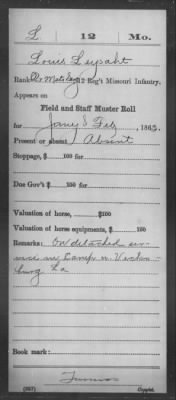 L | 12 | Mo.
Louis
Rank 12 Reg't Missouri Infantry.
Appears on
Field and Staff Muster Roll
for Jany & Feb, 1863.
Present or absent Absent
Stoppage, $ 100 for
Due Gov't $ 100 for
Valuation of horse, $ 100
Valuation of horse equipments, $ 100
Remarks: On detached ser-
vice Camp Vicks-
burg La
Book mark:
(337)
Copyist.